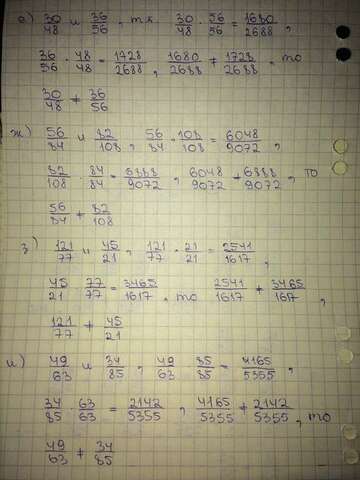 е) 30/48 и 36/56, т.к. 30/48 · 56/56 = 1680/2688,
36/56 · 48/48 = 1728/2688, 1680/2688 ≠ 1728/2688, то
30/48 ≠ 36/56
ж) 56/84 и 82/108, 56/84 · 108/108 = 6048/9072,
82/108 · 84/84 = 6888/9072, 6048/9072 ≠ 6888/9072, то
56/84 ≠ 82/108
з) 121/77 и 45/21, 121/77 · 21/21 = 2541/1617,
45/21 · 77/77 = 3465/1617, то 2541/1617 ≠ 3465/167,
121/77 ≠ 45/21
и) 49/63 и 34/85, 49/63 · 85/85 = 4165/5355,
34/85 · 63/63 = 2142/5355, 4165/5355 ≠ 2142/5355, то
49/63 ≠ 34/85